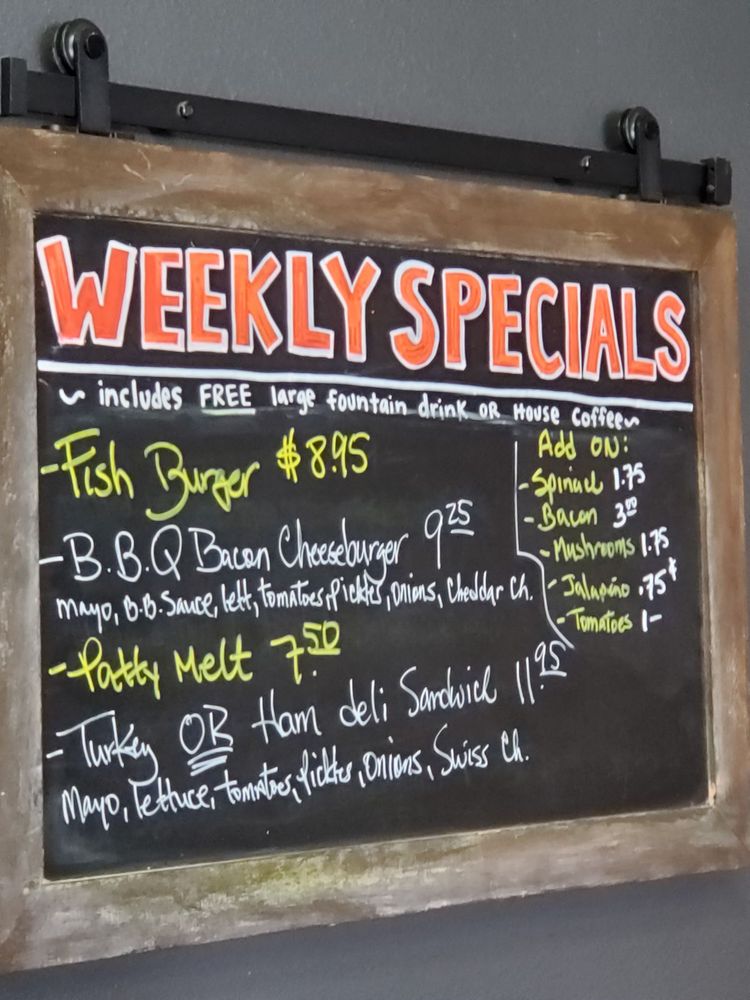 WEEKLY SPECIALS
~ includes FREE large fountain drink OR House Coffee~
-Fish Burger $8.95
-B.B.Q Bacon Cheeseburger 9.25
Mayo, B.B. Sauce, lett, tomatoes, Pickles, Onions, Cheddar Ch.
-Patty Melt 7.50
-Turkey OR Ham deli Sandwich 11.95
Mayo, lettuce, tomatoes, Pickles, Onions, Swiss Ch.
Add ON:
-Spinach 1.75
-Bacon 3.00
-Mushrooms 1.75
-Jalapeño .75¢
-Tomatoes 1-